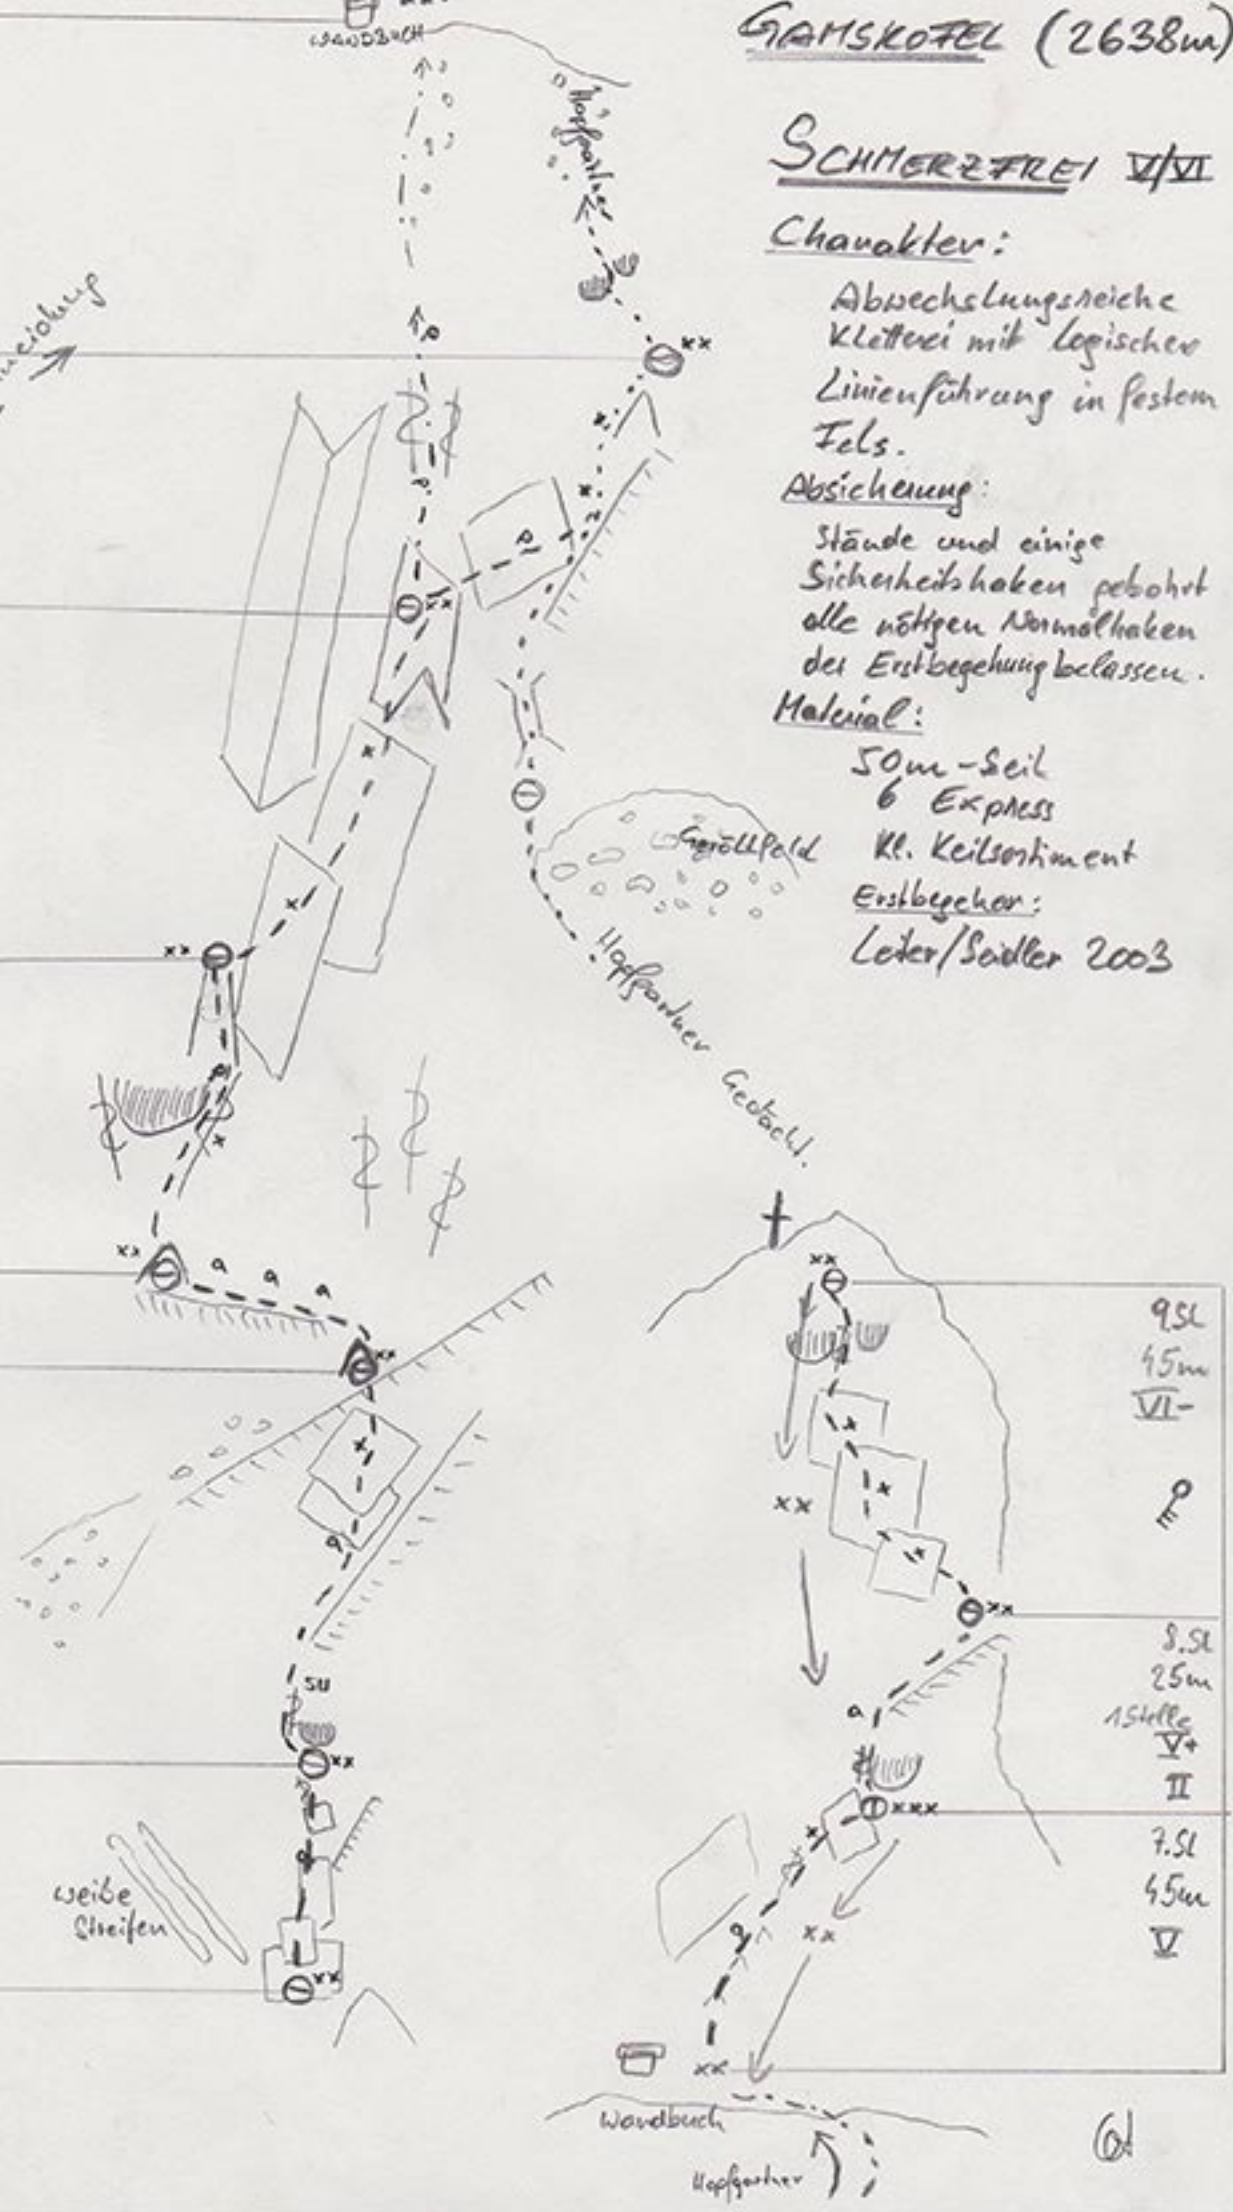 WANDBUCH
GAMSKOFEL (2638m)
SCHMERZFREI V/VI
Charakter:
Abwechslungsreiche
Kletterei mit logischer
Linienführung in festem
Fels.
Absicherung:
Stände und einige
Sicherheitshaken gebohrt
alle nötigen Normalhaken
der Erstbegehung belassen.
Material:
50m-Seil
6 Express
Kl. Keilsortiment
Erstbegeher:
Leiter/Seidler 2003
Hopfgartner
xx
xx
Geröllfeld
xx
Hopfgartner Gedächt.
xx
a a a
xx
xx
9SL
45m
VI-
xx
xx
8.SL
25m
1 Stelle
V+
II
SU
a
xx
xxx
7.SL
45m
V
weiße
Streifen
xx
xx
xx
Wandbuch
Hopfgartner
61